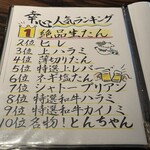 幸心人気ランキング
1 絶品生たん
2位 ヒレ
3位 上ハラミ
4位 薄切りたん
5位 特選上レバー
6位 ネギ塩たん
7位 シャトーブリアン
8位 特選和牛ハラミ
9位 特選和牛カイノミ
10位 名物!とんちゃん